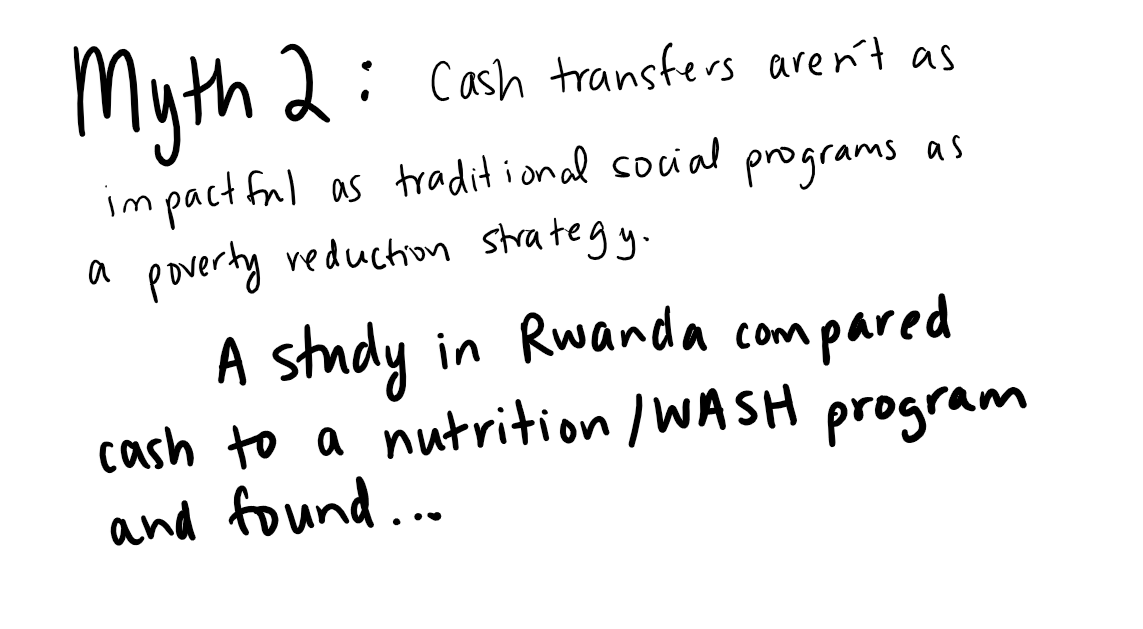 Myth 2: Cash transfers aren't as
impactful as traditional social programs as
a poverty reduction strategy.
A study in Rwanda compared
cash to a nutrition/WASH program
and found...